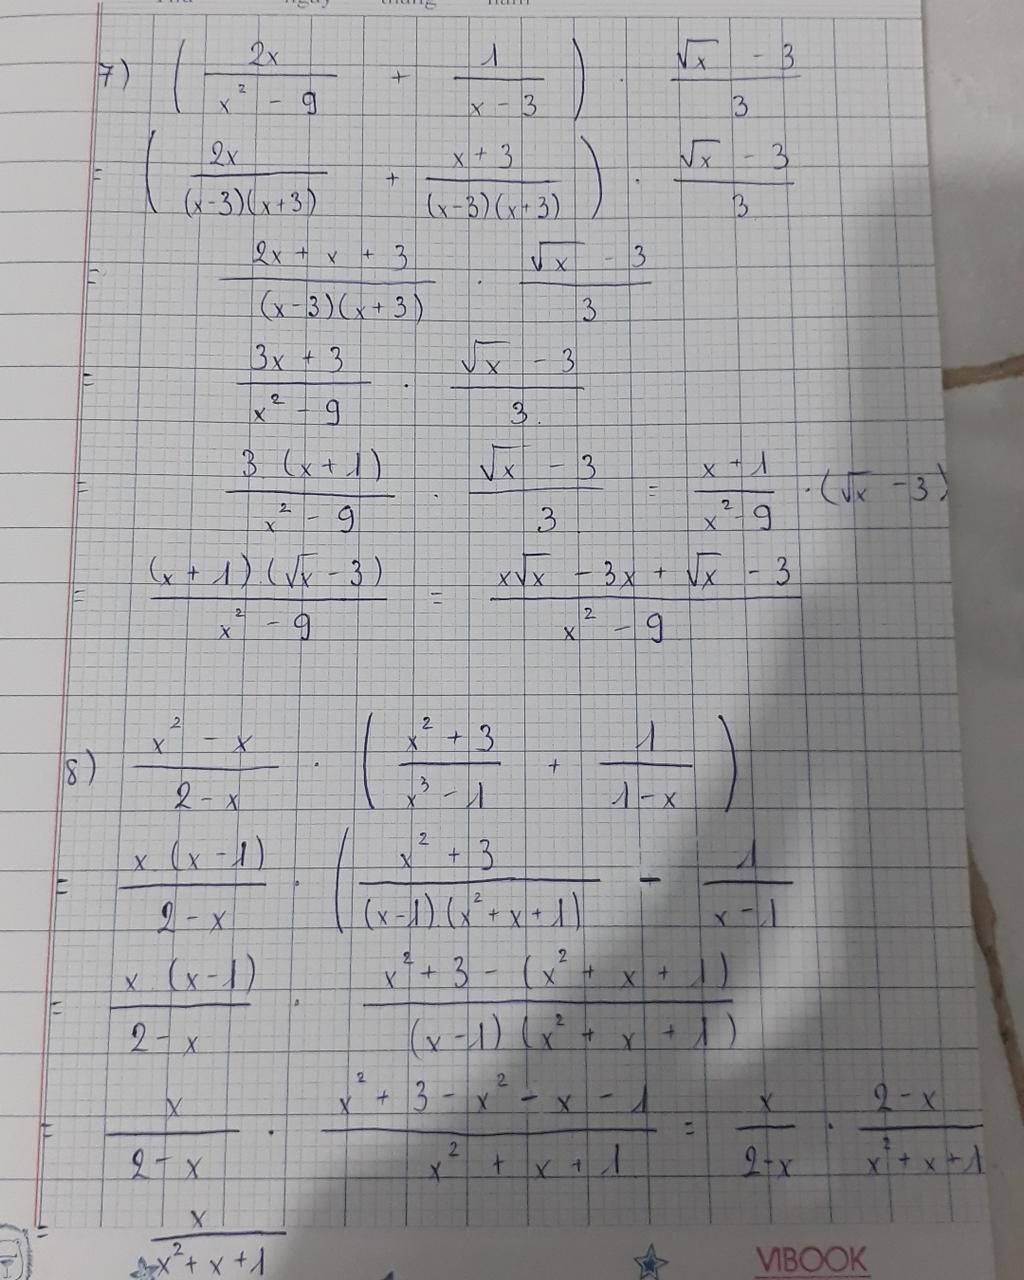 7) ( 2x / (x² - 9) + 1 / (x - 3) ) . (√x - 3) / 3
= ( 2x / ((x-3)(x+3)) + (x+3) / ((x-3)(x+3)) ) . (√x - 3) / 3
= (2x + x + 3) / ((x-3)(x+3)) . (√x - 3) / 3
= (3x + 3) / (x² - 9) . (√x - 3) / 3
= 3.(x+1) / (x² - 9) . (√x - 3) / 3 = (x+1) / (x² - 9) . (√x - 3)
= (x+1).(√x - 3) / (x² - 9) = (x√x - 3x + √x - 3) / (x² - 9)
8) (x² - x) / (2 - x) . ( (x² + 3) / (x³ - 1) + 1 / (1 - x) )
= x.(x-1) / (2 - x) . ( (x² + 3) / ((x-1).(x² + x + 1)) - 1 / (x - 1)
= x.(x-1) / (2 - x) . (x² + 3 - (x² + x + 1)) / ((x-1)(x² + x + 1))
= x / (2 - x) . (x² + 3 - x² - x - 1) / (x² + x + 1) = x / (2 - x) . (2 - x) / (x² + x + 1)
= x / (x² + x + 1)
VIBOOK